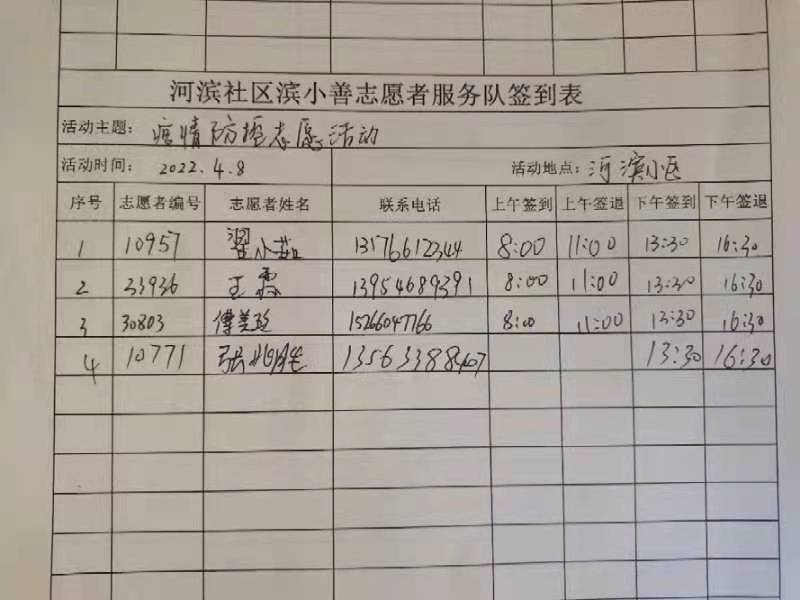 河滨社区滨小善志愿者服务队签到表
活动主题： 疫情防控志愿活动
活动时间： 2022.4.8 活动地点：河滨小区
序号 志愿者编号 志愿者姓名 联系电话 上午签到 上午签退 下午签到 下午签退
1 10957 翟小茹 13576612344 8:00 11:00 13:30 16:30
2 33936 王霞 13954689391 8:00 11:00 13:30 16:30
3 30803 傅美玲 15266047766 8:00 11:00 13:30 16:30
4 10771 张兆胜 13563388407 13:30 16:30